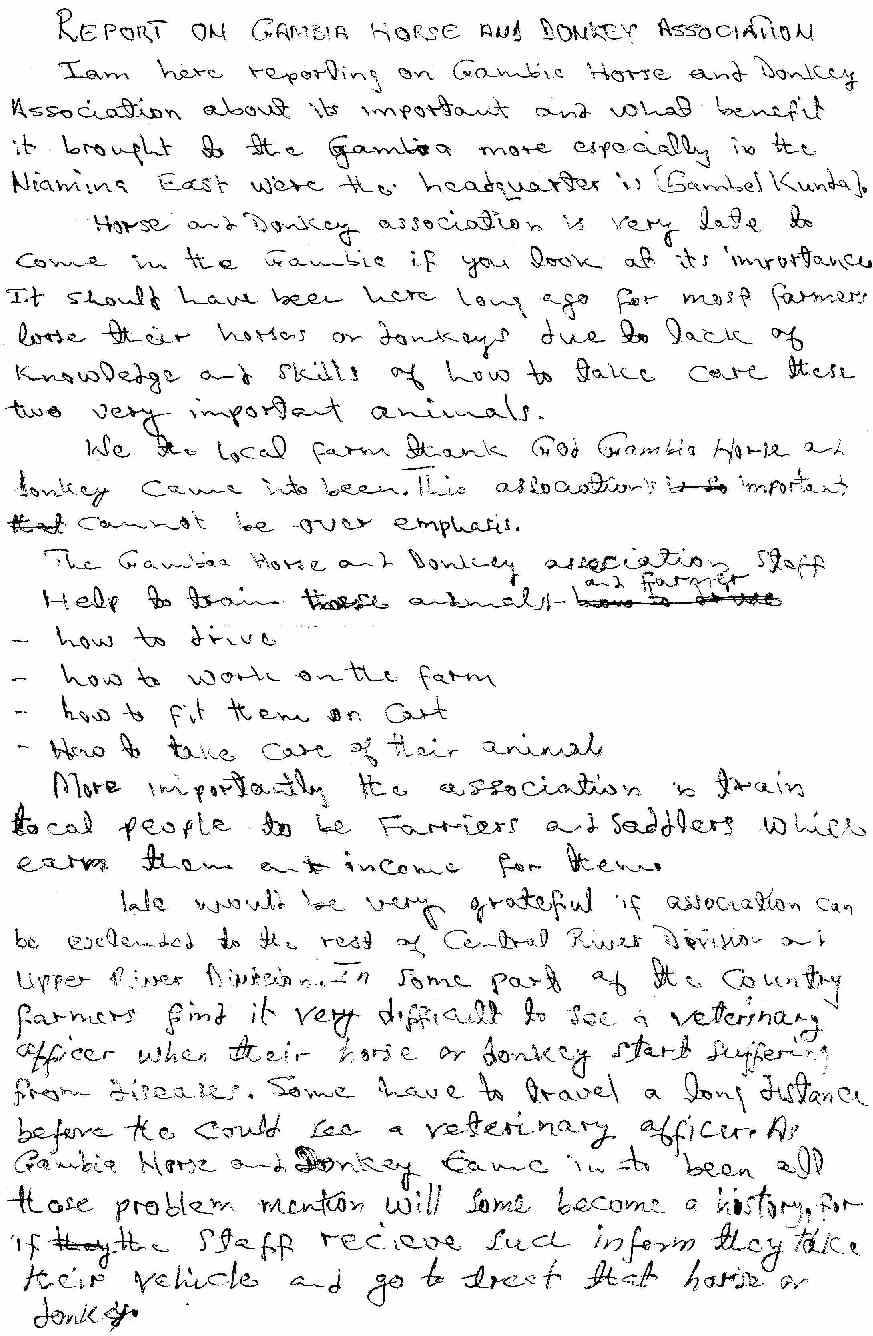 REPORT ON GAMBIA HORSE AND DONKEY ASSOCIATION
I am here reporting on Gambia Horse and Donkey
Association about its important and what benefit
it brought to the Gambia more especially in the
Niamina East were the headquarter is (Gambel Kunda).
Horse and Donkey association is very late to
come in the Gambia if you look at its importance
It should have been here long ago for most farmers
loose their horses or donkeys due to lack of
knowledge and skills of how to take care these
two very important animals.
We the local farm thank God Gambia Horse and
donkey came into been. This association's is so important
that cannot be over emphasis.
The Gambia Horse and Donkey association staff
Help to train these animals and farmer
- how to drive
- how to work on the farm
- how to fit them on cart
- How to take care of their animals
More importantly the association is train
local people to be Farriers and Saddlers which
earn them and income for them.
We would be very grateful if association can
be extended to the rest of Central River Division and
Upper River Division. In some part of the country
farmers find it very difficult to see a veterinary
officer when their horse or donkey start suffering
from diseases. Some have to travel a long distance
before the could see a veterinary officer. As
Gambia Horse and Donkey came in to been all
those problem mention will some become a history, for
if they the staff recieve such inform they take
their vehicle and go to treat that horse or
donkey.